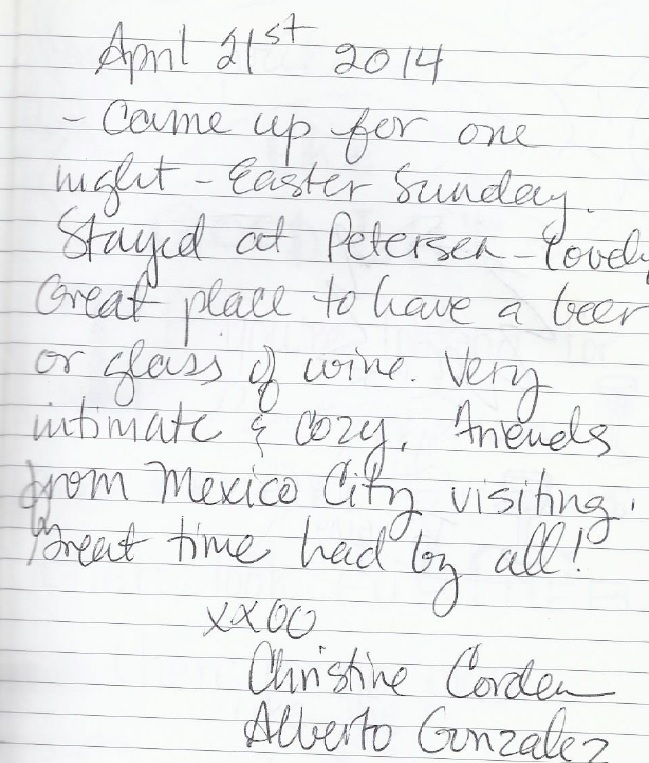 April 21st 2014
- Came up for one
night - Easter Sunday.
Stayed at Petersen - Lovely
Great place to have a beer
or glass of wine. Very
intimate & cozy. Friends
from Mexico City visiting.
Great time had by all!
xxOO
Christine Corden
Alberto Gonzalez